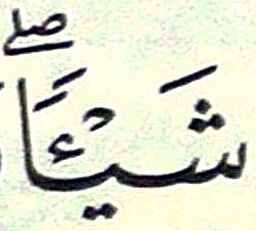 شَيْـًٔاۖ